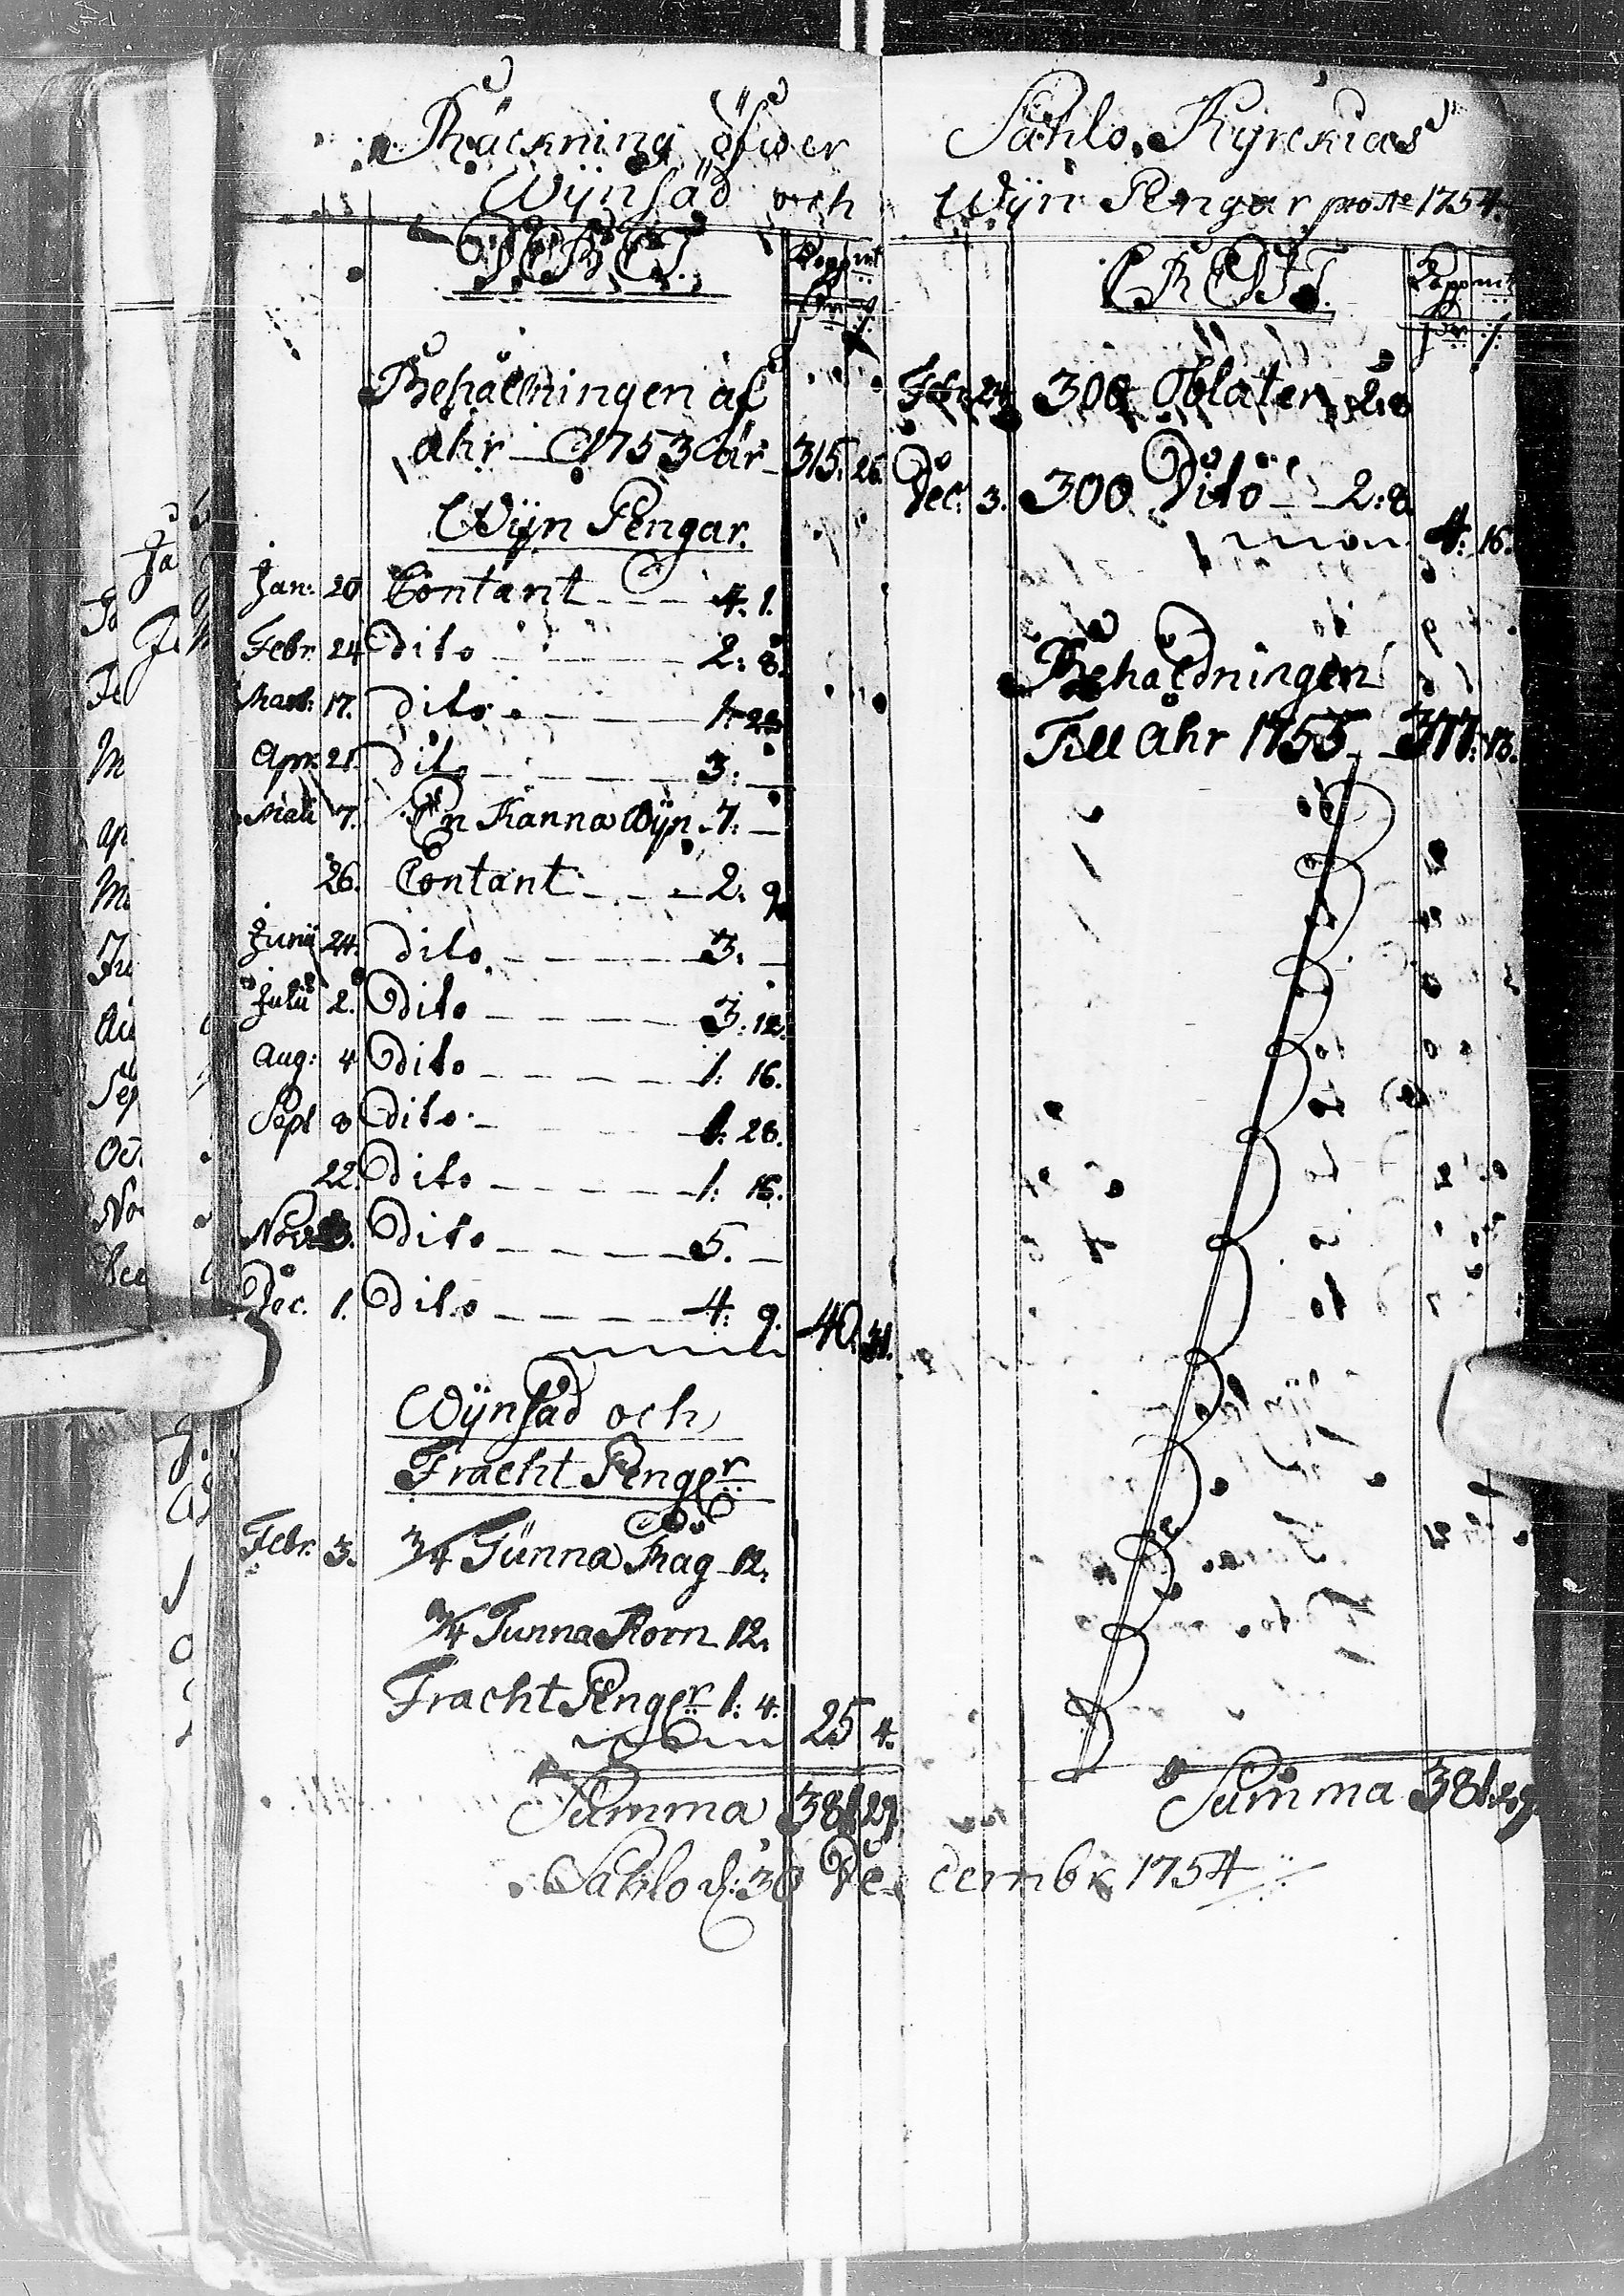 Räckning öfwer
Wijnsäd och
DEBET.
Koppmt
Dr /
Behåldningen af
ahr 1753 är 315. 26.
Wijn Pengar.
Jan: 20 Contant 4. 1.
Febr. 24 Dito 2: 8.
Mart: 17. Dito 1:
Apr. 21. Dito 3: —
Maii 7. En Kanna Wijn 7: —
26. Contant 2. 9
Junii 24. Dito 3. —
Julii 2. Dito 3: 12.
Aug: 4 Dito 1: 16.
Sept 8 Dito 1: 28.
22. Dito 1: 16.
Nov. 3. Dito 5. —
Dec. 1. Dito 4: 9. 40. 31.
Wijnsäd och
Fracht Penger
Febr. 3. 3/4 Tunna Råg 12.
3/4 Tunna Korn 12.
Fracht Penger 1: 4. 25 4.
Summa 381 29.
Sahlo d: 30 De
Sahlo Kyrckias
Wijn Pengar pro Ao 1754.
CREDIT.
Koppmt
Dr /
Febr 24 300 Oblater 2: 8
Dec. 3. 300 Dito 2: 8
4: 16.
Behåldningen
Till åhr 1755 377: 13.
Summa 381: 29.
cembr 1754